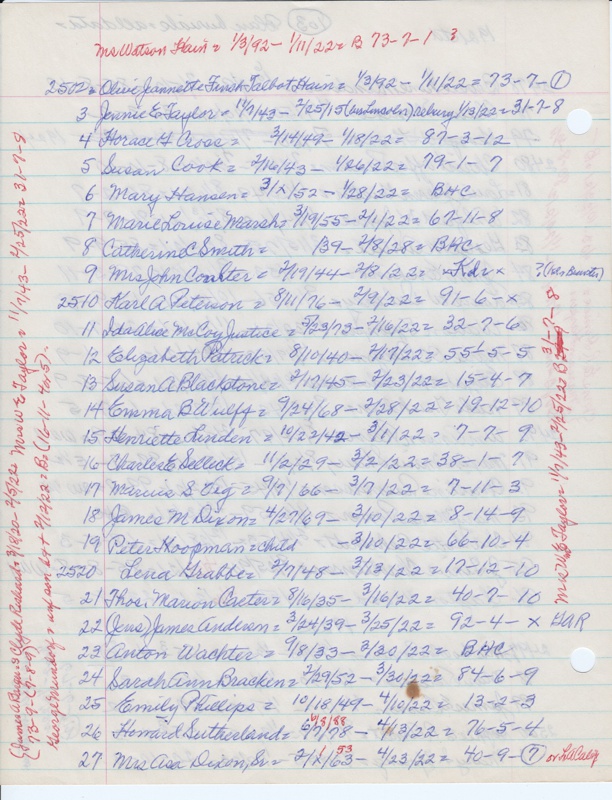 Mrs Watson Hain = 1/3/92 - 1/11/22 = B 73-7-1 ?
2502 = Olive Jeannette Finch Talbot Hain = 1/3/92 - 1/11/22 = 73-7-①
3 Jennie E Taylor = 11/7/43 - 2/25/15 Asbury 1/13/22 = 31-7-8
4 Horace H Cross = 3/14/49 - 1/18/22 = 87-3-12
5 Susan Cook = 2/16/43 - 1/26/22 = 79-1-7
6 Mary Hansen = 3/x/52 - 1/28/22 = BHC
7 Marie Louise Marsh = 3/19/55 - 2/1/22 = 67-11-8
8 Catherine C Smith = 139 - 2/8/28 = BHC
9 Mrs John Coulter = 2/19/44 - 2/8/22 = x Kdr x ?
2510 Karl A Peterson = 8/11/76 - 2/9/22 = 91-6-x
11 Ida Alice McCoy Justice = 5/23/73 - 2/16/22 = 32-7-6
12 Elizabeth Patrick = 8/10/40 - 2/17/22 = 55-5-5
13 Susan A Blackstone = 2/17/45 - 2/23/22 = 15-4-7
14 Emma B Wulff = 9/24/68 - 2/28/22 = 19-12-10
15 Henriette Linden = 10/22/42 - 3/1/22 = 7-7-9
16 Charles E Selleck = 11/2/29 - 3/2/22 = 38-1-7
17 Marcus S Org = 9/7/66 - 3/7/22 = 7-11-3
18 James M Dixon = 4/27/69 - 3/10/22 = 8-14-9
19 Peter Koopman = child - 3/10/22 = 66-10-4
2520 Lena Grabbe = 2/7/48 - 3/13/22 = 17-12-10
21 Thos. Marion Carter = 8/16/35 - 3/16/22 = 40-7-10
22 (Jens) James Anderson = 3/24/39 - 3/25/22 = 92-4-x GAR
23 Anton Wachter = 9/8/33 - 3/30/22 = BHC
24 Sarah Ann Bracken = 2/29/52 - 3/30/22 = 84-6-9
25 Emily Phillips = 10/18/49 - 4/10/22 = 13-2-3
6/8/88
26 Howard Sutherland = 6/7/78 - 4/13/22 = 76-5-4
1 53
27 Mrs Asa Dixon, Sr = 2/x/63 - 4/23/22 = 40-9-⑦ or LA Calif
Mrs W E Taylor = 11/7/43 - 2/25/22 = 31-7-8
Mrs W E Taylor = 11/7/43 - 2/25/22 = B 31-7-8